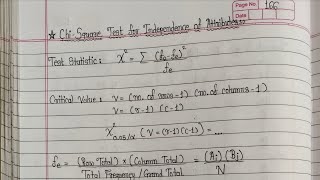 Page No. 166
Date
★ Chi-Square Test for Independence of Attributes :-
Test Statistic : χ² = Σ (fo - fe)² / fe
Critical Value : ν = (no. of rows - 1) (no. of columns - 1)
ν = (r-1) (c-1)
χ²0.05/α (ν = (r-1)(c-1)) = ...
fe = (Row Total) × (Column Total) / Total Frequency / Grand Total = (Ai) (Bj) / N